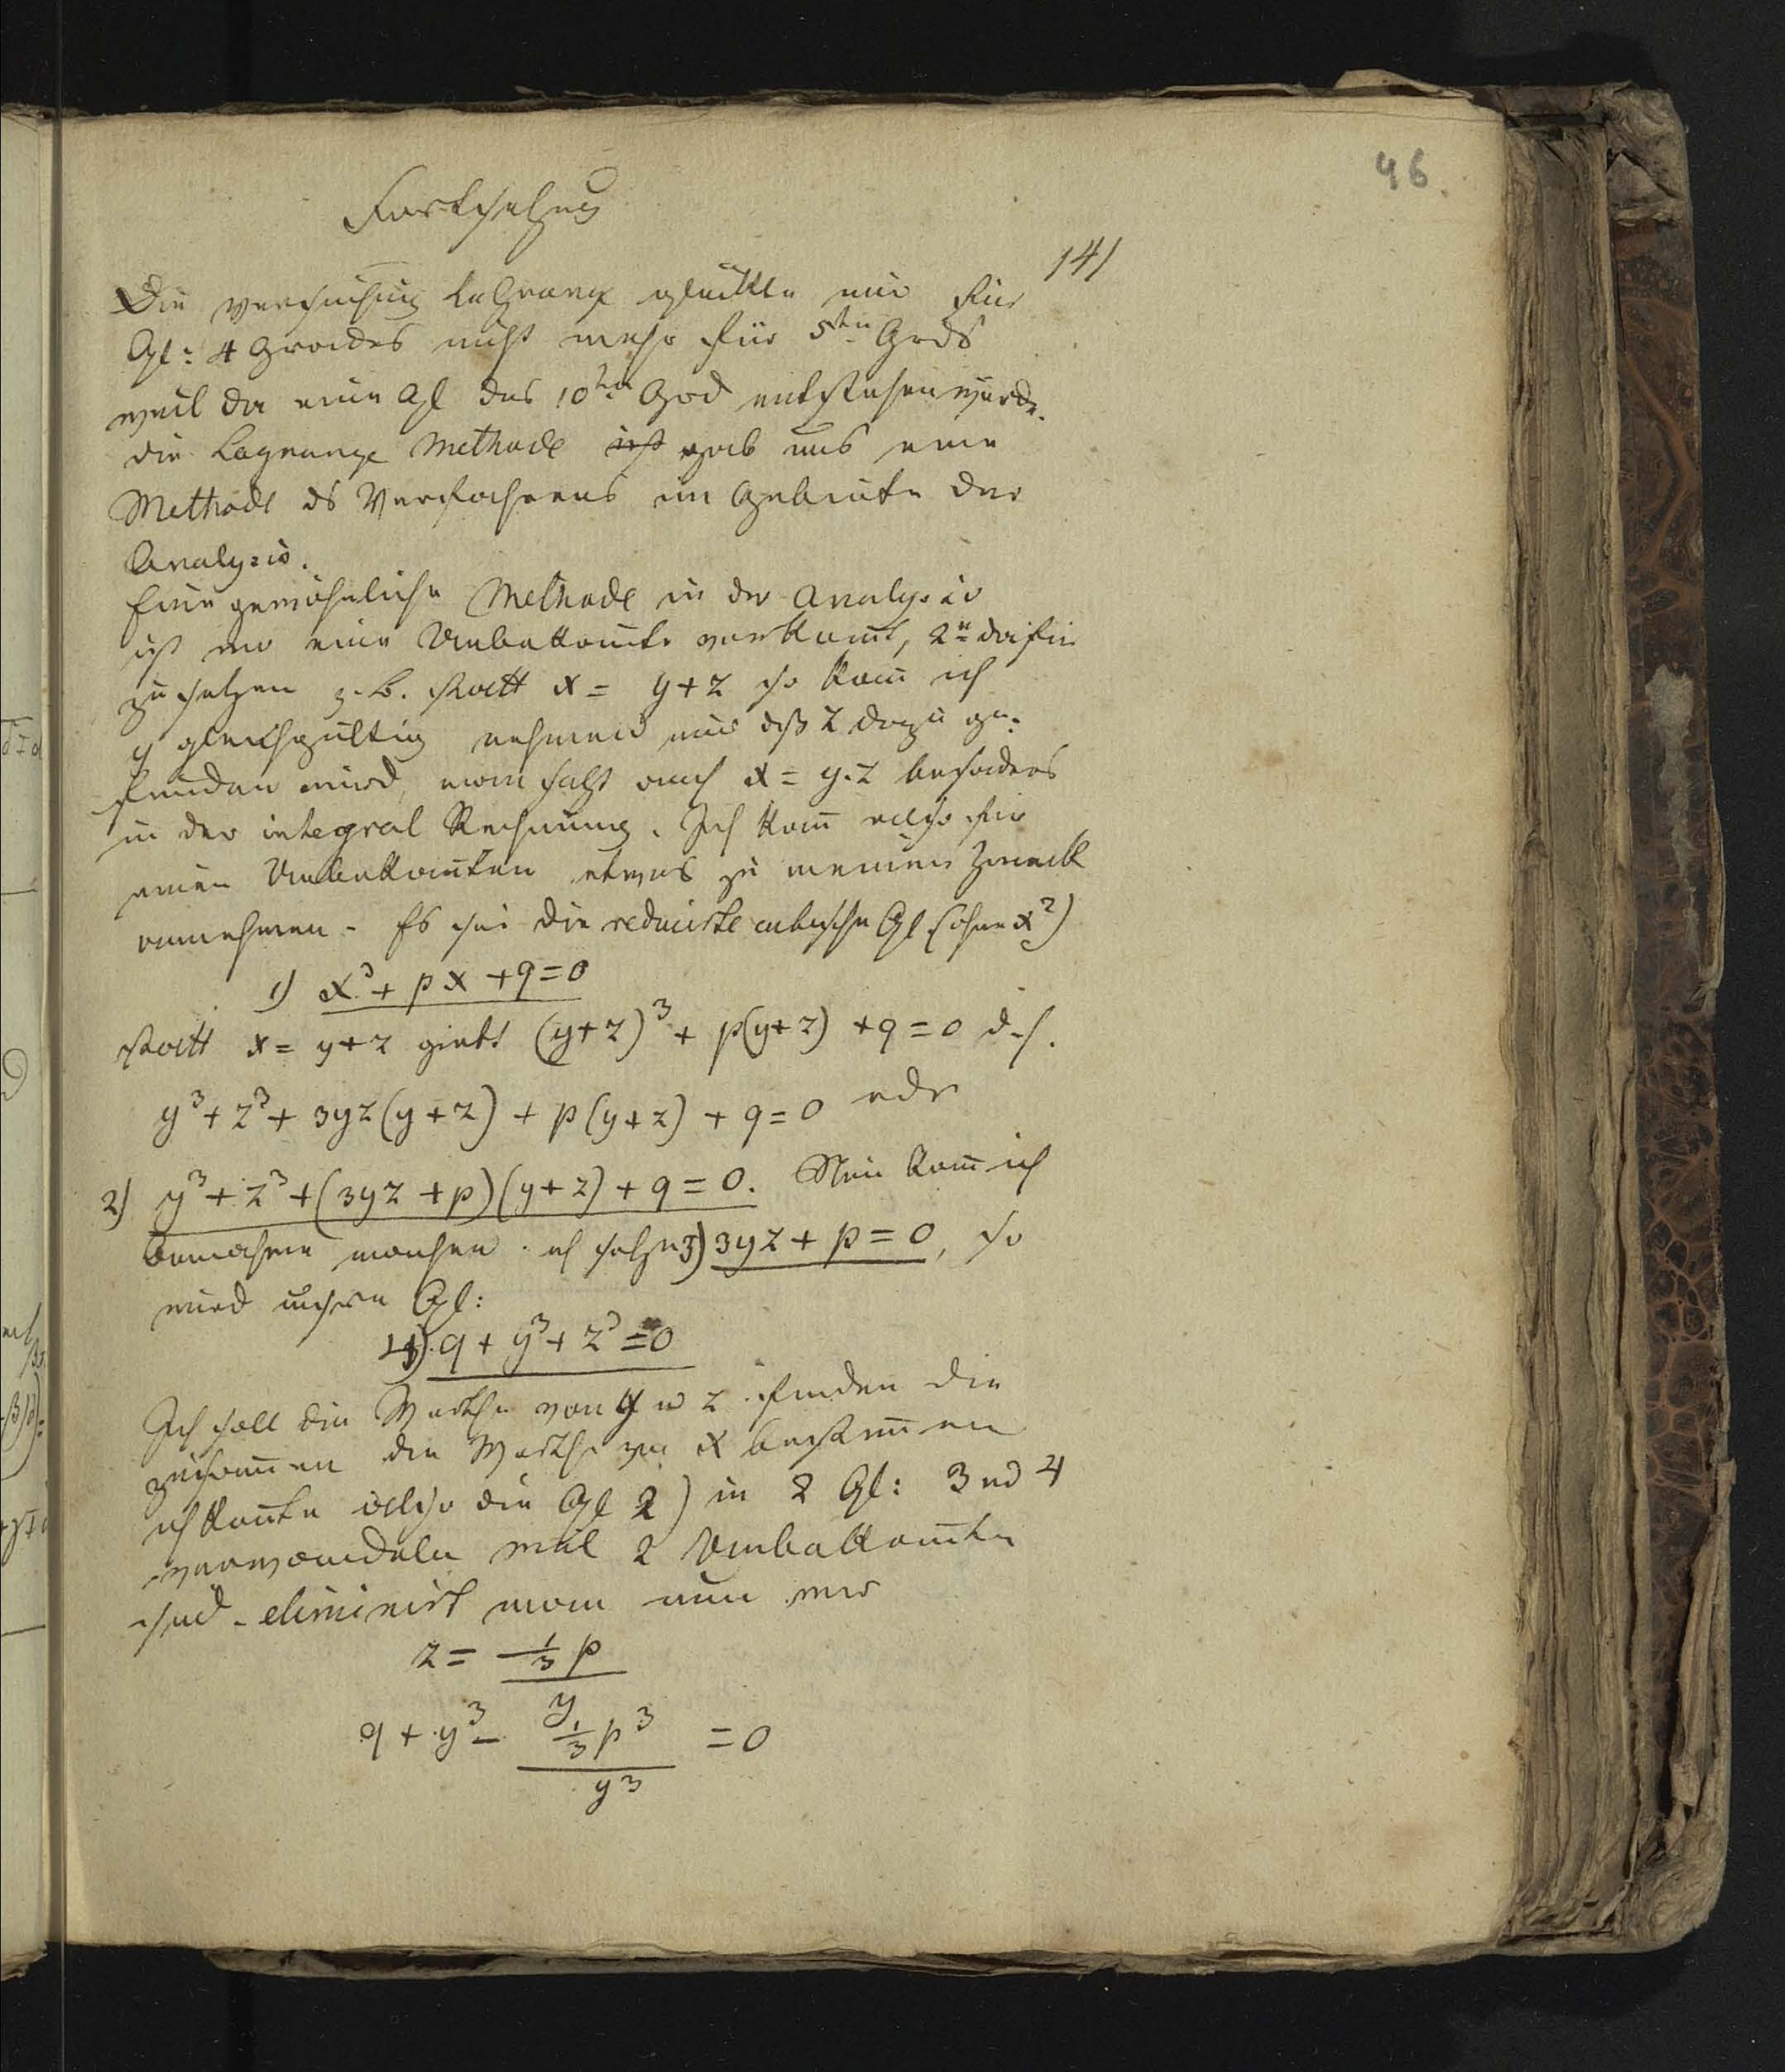 46.
Fortsetzung
141
Die Versuchung laGrange glückte nur für
Gl: 4 Grades nicht mehr für 5ten Grds
weil da eine Gl des 10ten Grd entstehen würde.
die Lagrange Methode ist gab uns eine
Methode ds Verfahrens im Gebiete der
Analysis.
Eine gewöhnliche Methode in der Analysis
ist wo eine Unbekannte vorkomt, 2 dafür
zu setzen z. B. statt x = y + z so kann ich
y gleichgültig nehmen nur dß z dazu ge-
funden wird, man setzt auch x = y.z besonders
in der integral Rechnung. Ich kann also für
einen Unbekannten etwas zu meinem Zweck
annehmen. Es sei die reducirte cubische Gl (ohne x²)
1) x³ + px + q = 0
statt x = y + z giebt (y+z)³ + p(y+z) + q = 0 d.h.
y³ + z³ + 3yz(y+z) + p(y+z) + q = 0 oder
2) y³ + z³ + (3yz + p)(y+z) + q = 0. Nun kann ich
machen. ich setze 3) 3yz + p = 0, so
wird unsere Gl:
4) q + y³ + z³ = 0
Ich soll die Werthe von y u z finden die
zusammen die Werthe von x bestimmen
ich konnte also die Gl 2) in 2 Gl: 3 und 4
verwandeln weil 2 Unbekannte
sind. eliminirt man nun wir
z = -⅓ p / y
q + y³ - ⅓ p³ / y³ = 0